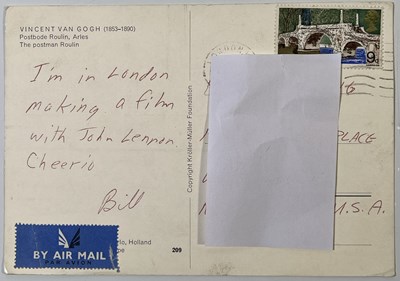 VINCENT VAN GOGH (1853–1890)
Postbode Roulin, Arles
The postman Roulin
I'm in London
making a film
with John Lennon.
Cheerio
Bill
BY AIR MAIL
PAR AVION
Holland
299
Copyright Kröller-Müller Foundation
9D
PLACE
U.S.A.